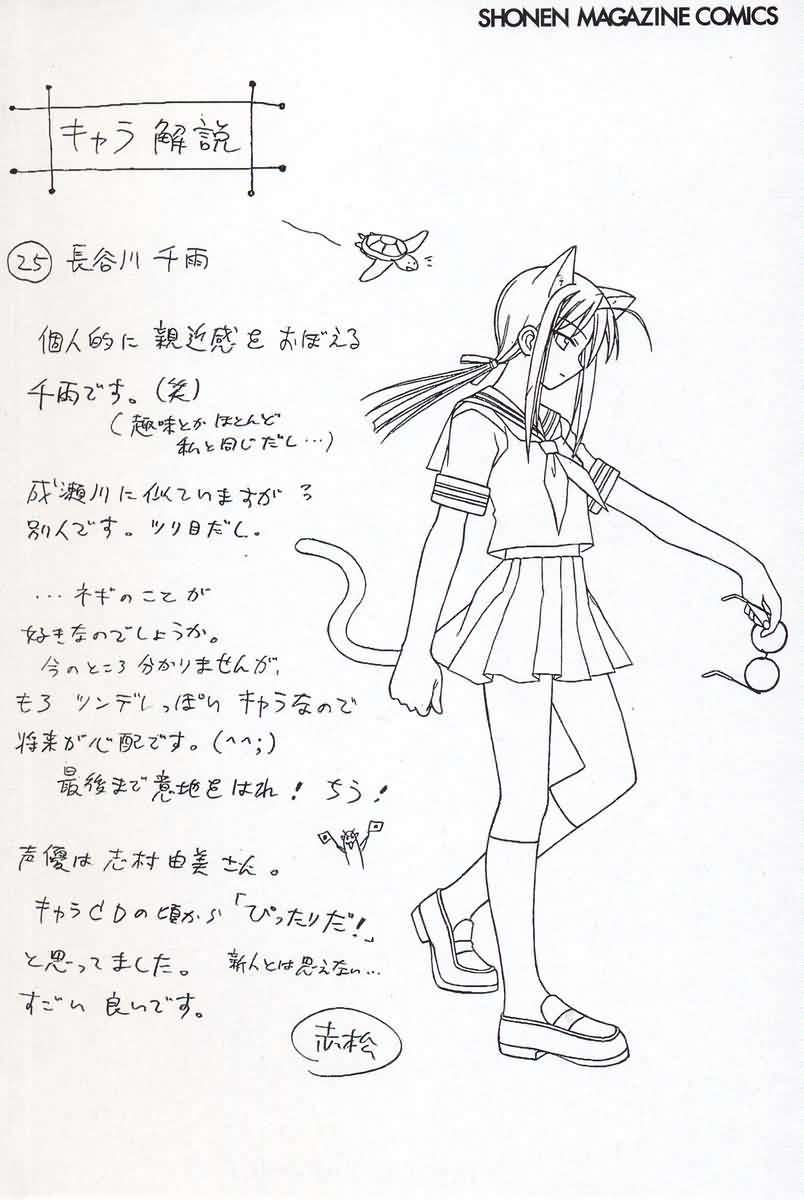 SHONEN MAGAZINE COMICS
キャラ 解説
25 長谷川 千雨
個人的に 親近感を おぼえる
千雨です。(笑)
(趣味とか ほとんど
私と同じだし…)
成瀬川に似ていますがろ
別人です。ツリ目だし。
…ネギのことが
好きなのでしょうか。
今のところ 分かりませんが、
もろ ツンデレっぽい キャラなので
将来が心配です。(^^;)
最後まで 意地をはれ! ちう!
声優は 志村 由美 さん。
キャラCDの頃から「ぴったりだ!」
と思ってました。 新人とは思えない…
すごい 良いです。
赤松